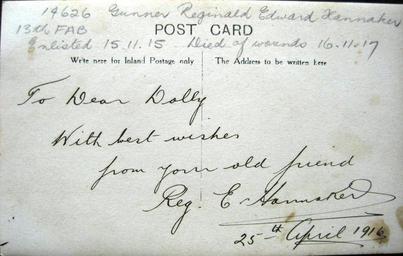 14626 Gunner Reginald Edward Hannaker
13th FAB
POST CARD
Enlisted 15.11.15 Died of wounds 16.11.17
Write here for Inland Postage only
The Address to be written here
To Dear Dolly
With best wishes
from your old friend
Reg. E. Hannaker
25th April 1916